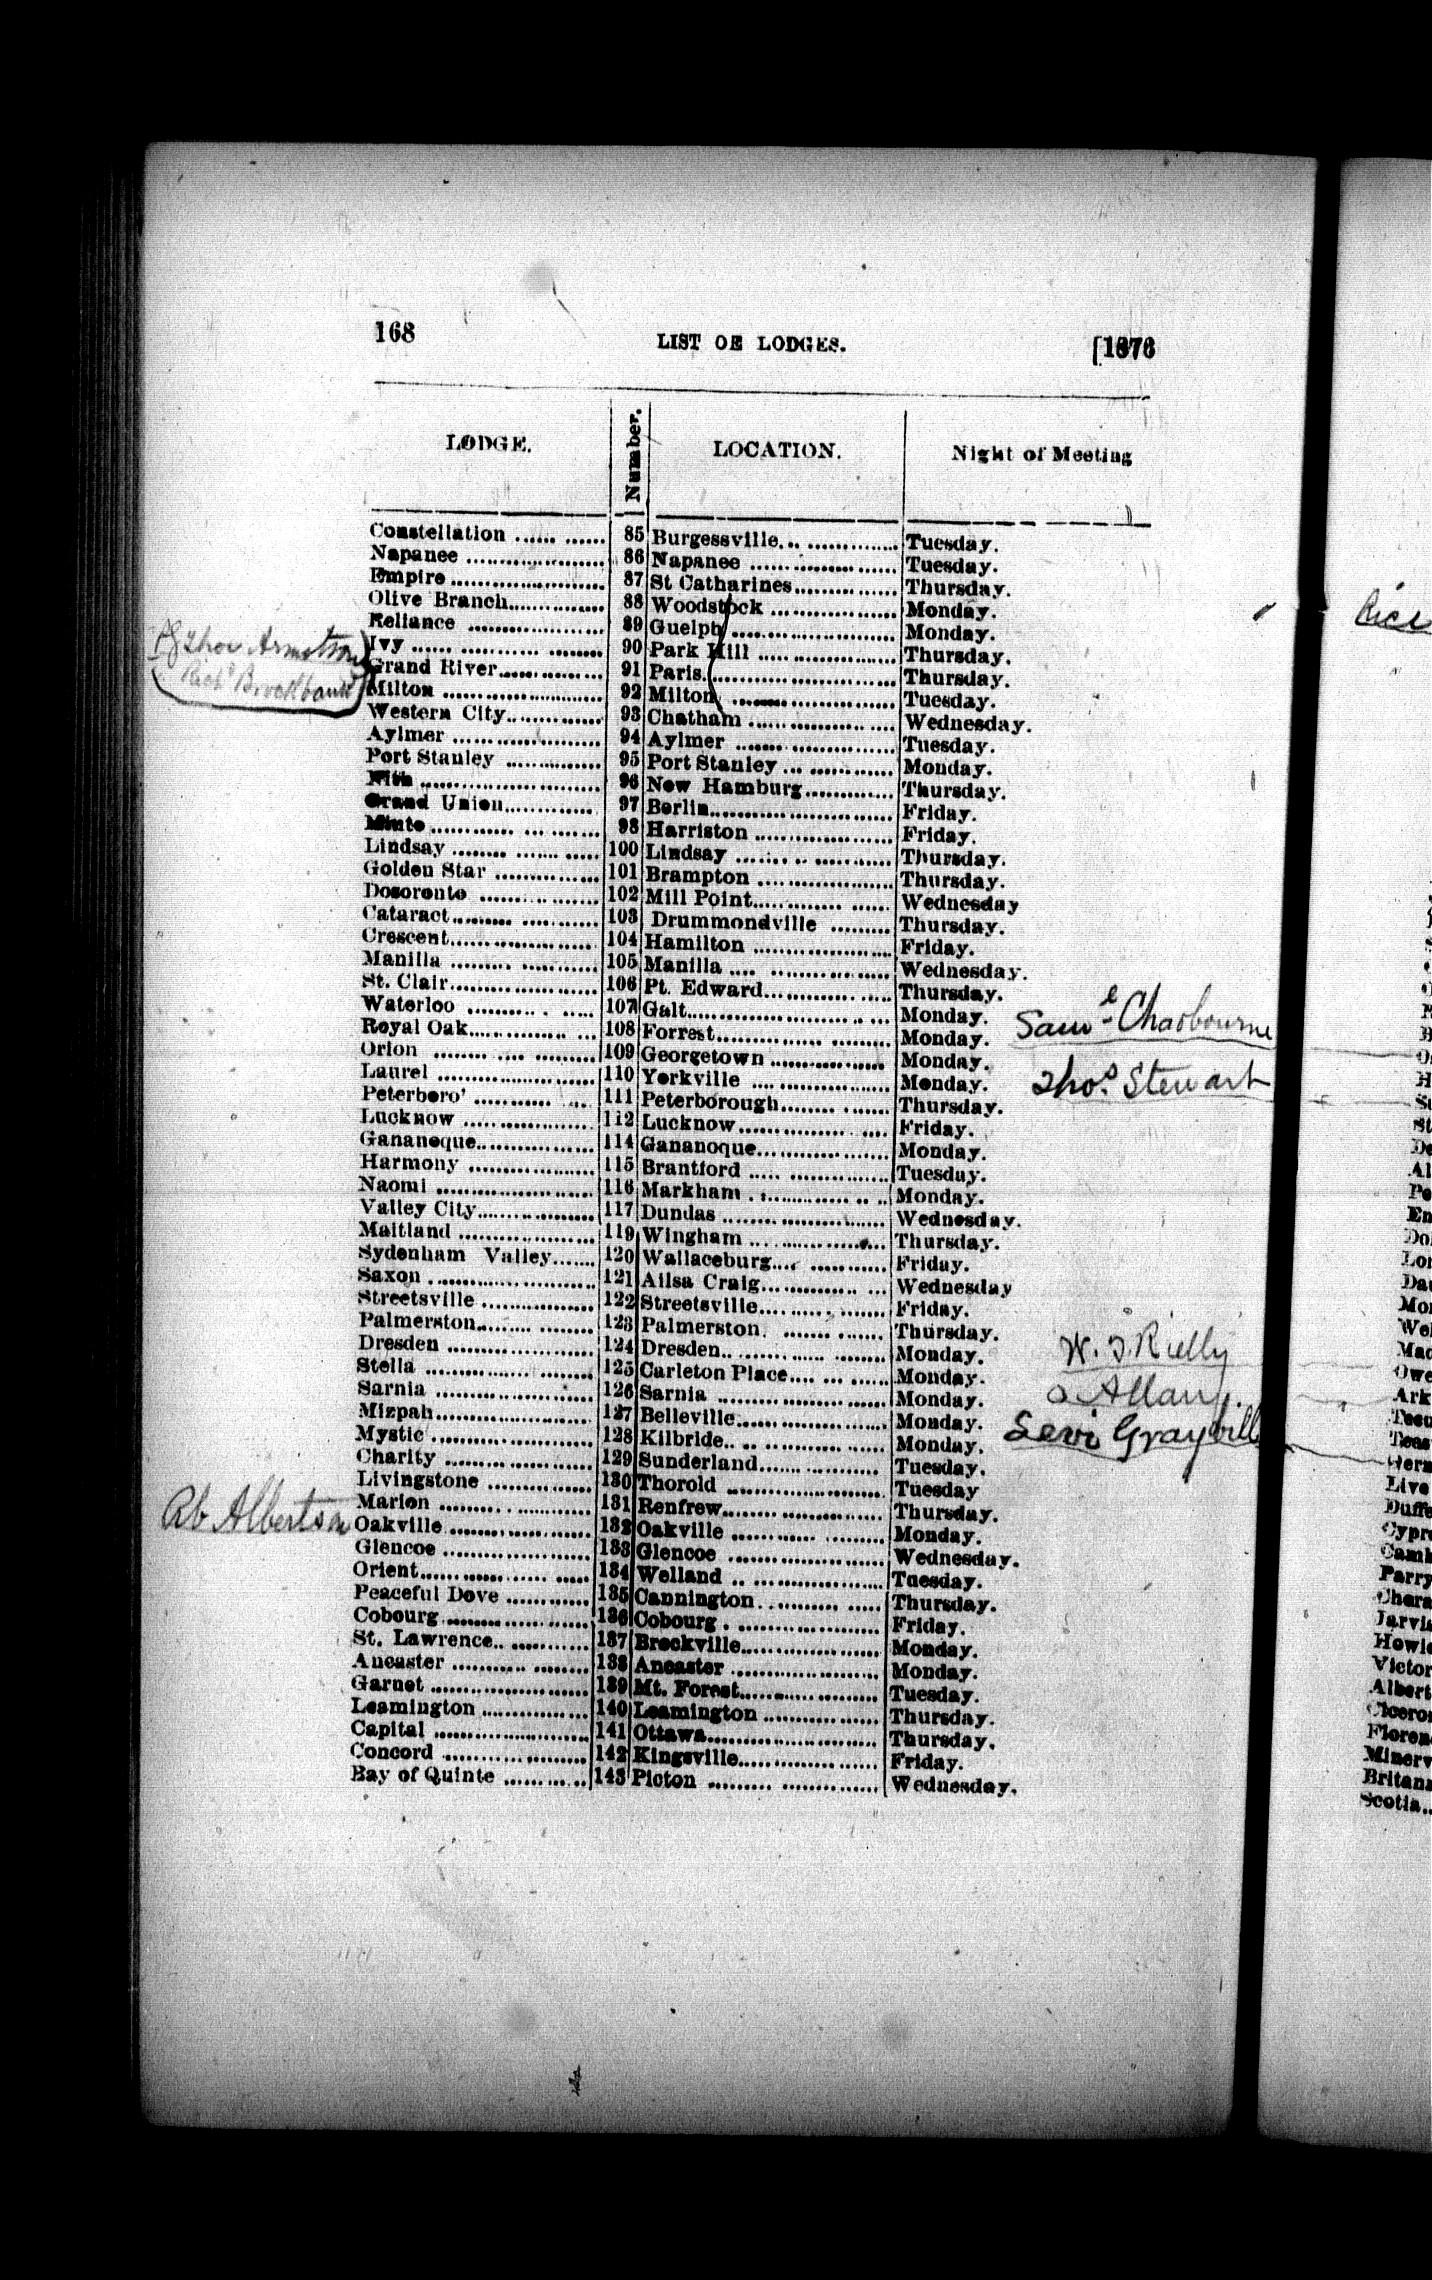 168 LIST OF LODGES. [1876
LODGE. Number. LOCATION. Night of Meeting
Constellation 85 Burgessville Tuesday.
Napanee 86 Napanee Tuesday.
Empire 87 St Catharines Thursday.
Olive Branch 88 Woodstock Monday.
Reliance 89 Guelph Monday.
Thos Armstrong
Ivy 90 Park Hill Thursday.
Grand River 91 Paris. Thursday.
Richd Brookbank
Milton 92 Milton Tuesday.
Western City 93 Chatham Wednesday.
Aylmer 94 Aylmer Tuesday.
Port Stanley 95 Port Stanley Monday.
Nith 96 New Hamburg Thursday.
Grand Union 97 Berlin Friday.
Minto 98 Harriston Friday.
Lindsay 100 Lindsay Thursday.
Golden Star 101 Brampton Thursday.
Desoronto 102 Mill Point Wednesday
Cataract 103 Drummondville Thursday.
Crescent 104 Hamilton Friday.
Manilla 105 Manilla Wednesday.
St. Clair 106 Pt. Edward Thursday.
Waterloo 107 Galt Monday.
Saml Chadbourne
Royal Oak 108 Forrest Monday.
Orion 109 Georgetown Monday.
Laurel 110 Yorkville Monday.
Thos. Stewart
Peterboro' 111 Peterborough Thursday.
Lucknow 112 Lucknow Friday.
Gananoque 114 Gananoque Monday.
Harmony 115 Brantford Tuesday.
Naomi 116 Markham Monday.
Valley City 117 Dundas Wednesday.
Maitland 119 Wingham Thursday.
Sydenham Valley 120 Wallaceburg Friday.
Saxon 121 Ailsa Craig Wednesday
Streetsville 122 Streetsville Friday.
Palmerston 123 Palmerston. Thursday.
Dresden 124 Dresden Monday.
W. J. Rielly
Stella 125 Carleton Place Monday.
Sarnia 126 Sarnia Monday.
Allan
Mizpah 127 Belleville Monday.
Mystic 128 Kilbride Monday.
Levi Grayvill
Charity 129 Sunderland Tuesday.
Livingstone 130 Thorold Tuesday
Marion 131 Renfrew Thursday.
Ab Albertson
Oakville 132 Oakville Monday.
Glencoe 133 Glencoe Wednesday.
Orient 134 Welland Tuesday.
Peaceful Dove 135 Cannington Thursday.
Cobourg 136 Cobourg Friday.
St. Lawrence 137 Brockville Monday.
Ancaster 138 Ancaster Monday.
Garnet 139 Mt. Forest Tuesday.
Leamington 140 Leamington Thursday.
Capital 141 Ottawa Thursday.
Concord 142 Kingsville Friday.
Bay of Quinte 143 Picton Wednesday.